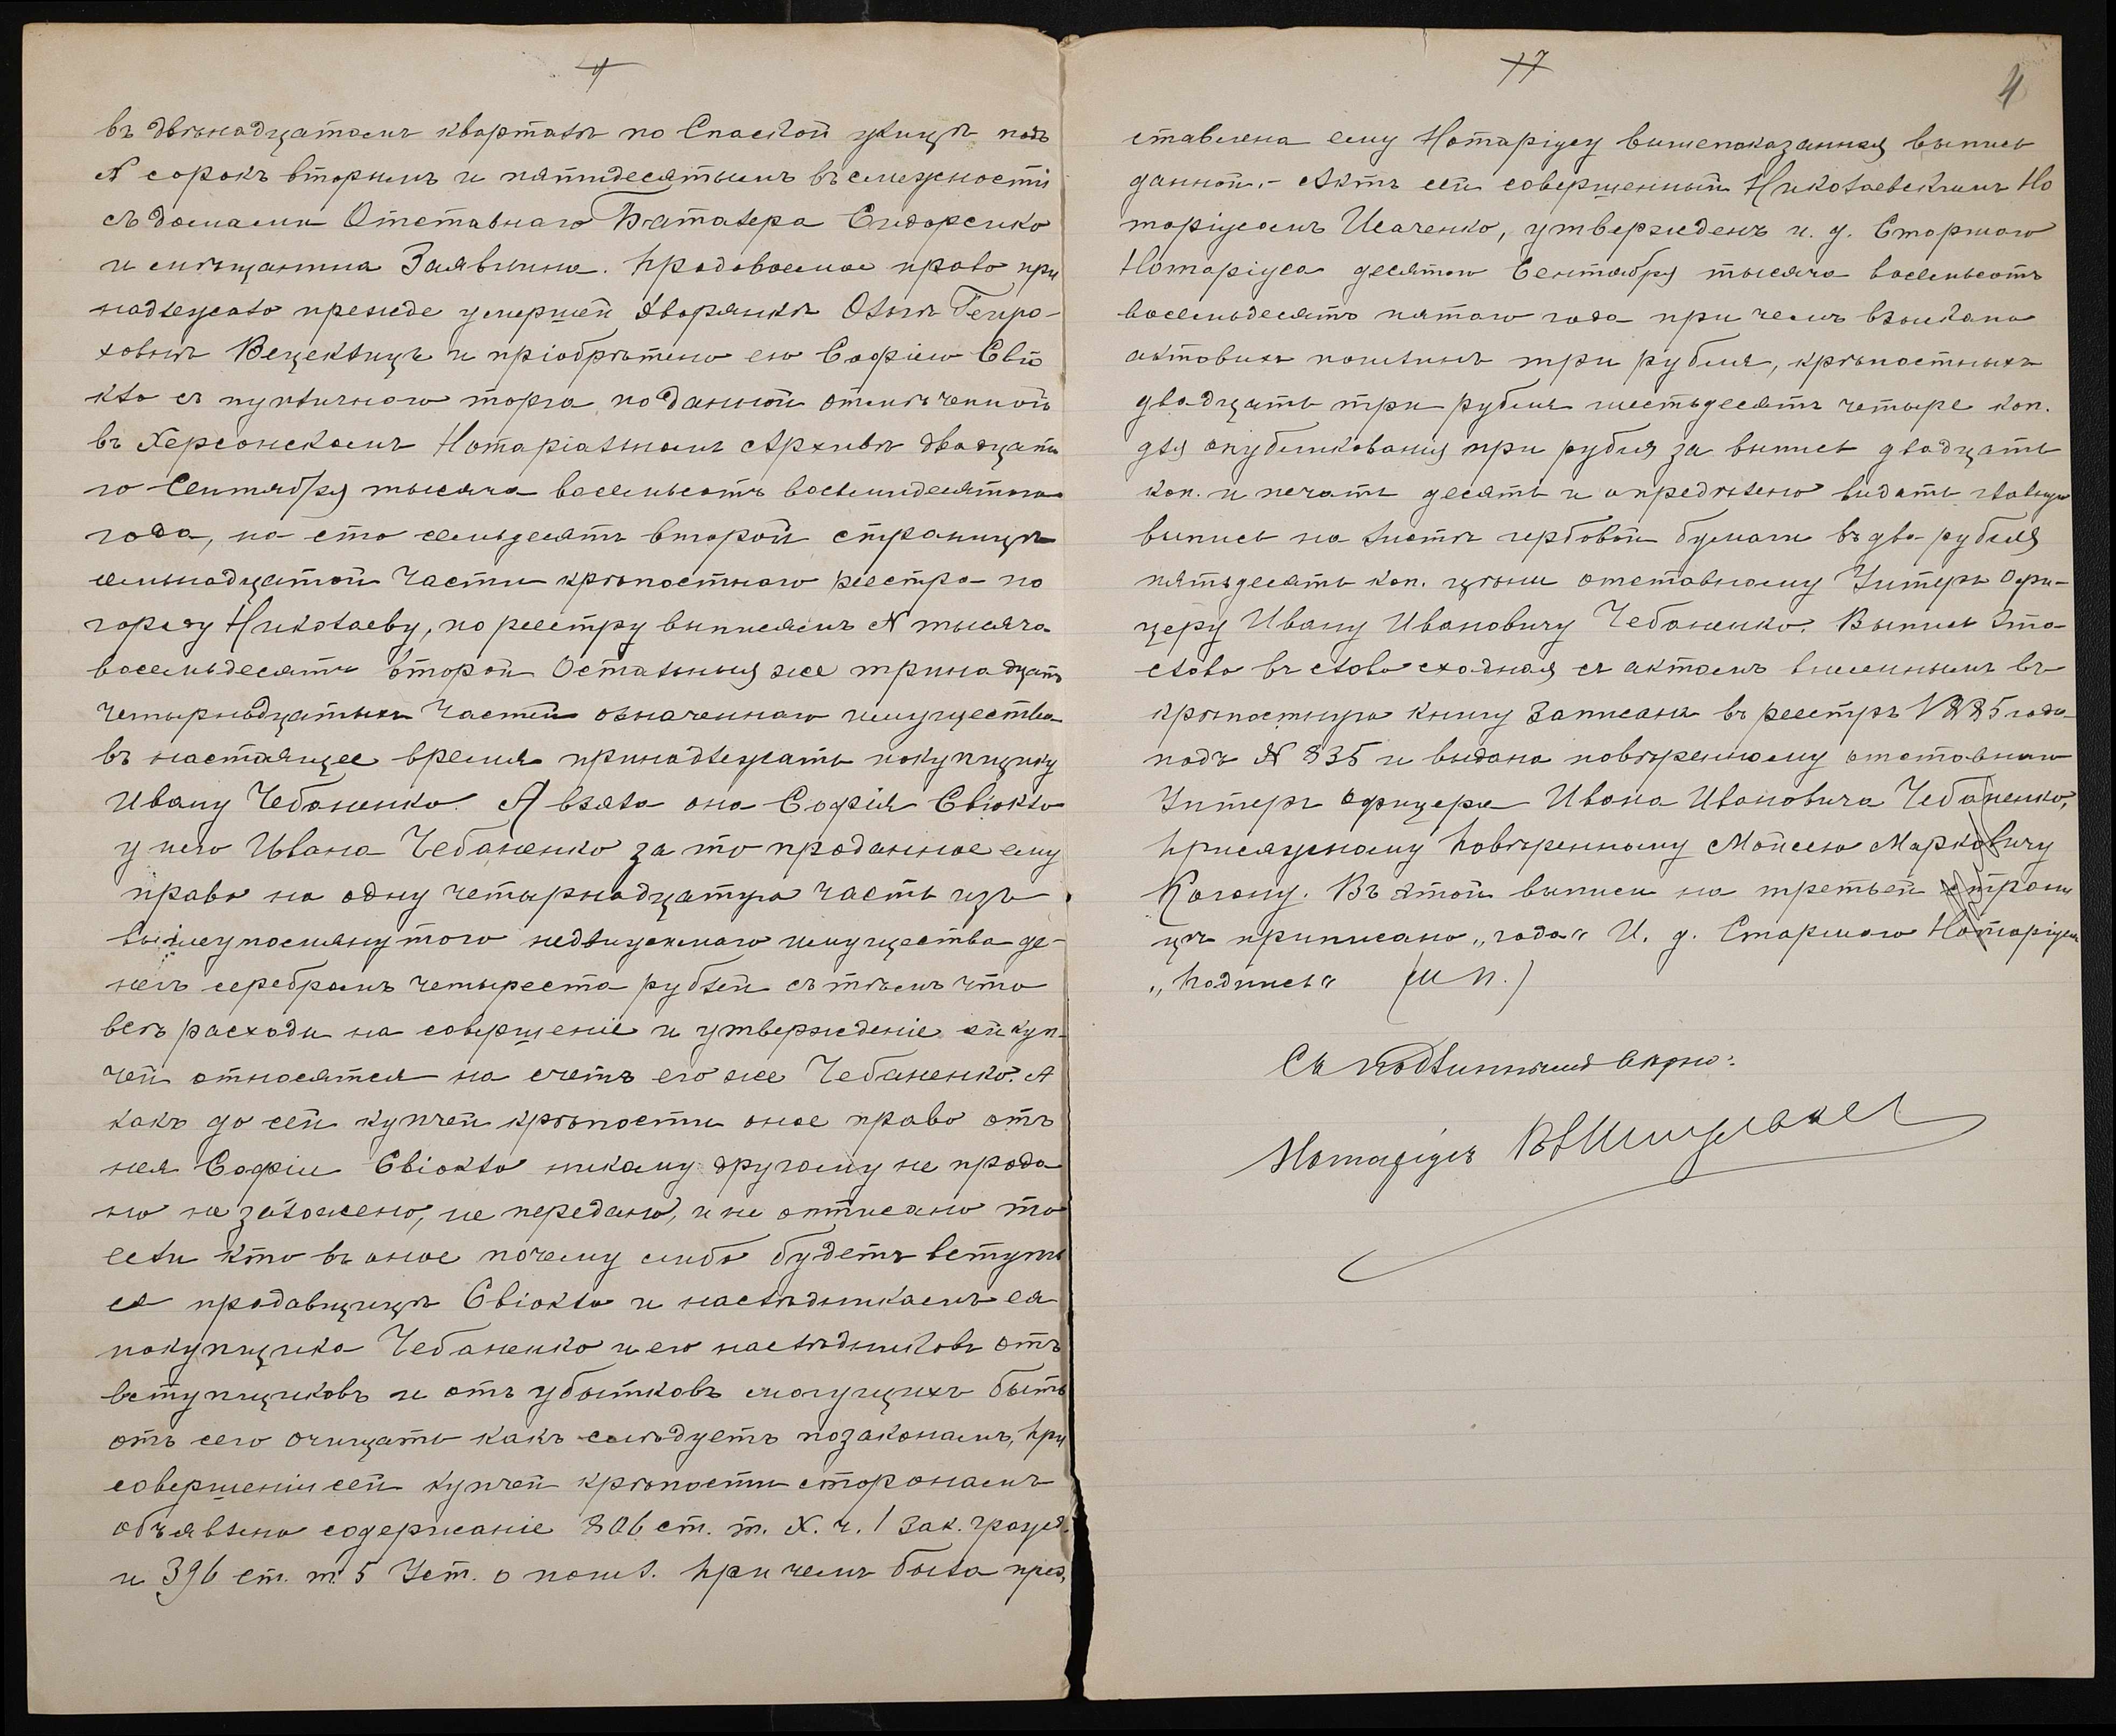 4
въ двѣнадцатомъ кварталѣ по Спаской улицѣ подъ
№ сорокъ вторымъ и пятидесятымъ въ смежности
съ домами Отставнаго Баталера Сидоренко
и мѣщанина Заявлина. Продаваемое право при
надлежало прежде умершей дворянкѣ Ольгѣ Генро-
ховнѣ Вецектицъ и пріобрѣтено ею Софіею Свіо
кло съ публичнаго торга, по данной отмѣченной
въ Херсонскомъ Нотаріальномъ Архивѣ двадцата
го Сентября тысяча восемьсотъ восьмидесятаго
года, на сто семьдесятъ второй страницѣ
семьнадцатой части крѣпостнаго реестра по
городу Николаеву, по реестру выписямъ № тысяча
восемьдесятъ второй Остальныя же тринадцать
четырнадцатыхъ частей означеннаго имущества
въ настоящее время принадлежатъ покупщику
Ивану Чебаненко. А взяла она Софія Свіокло
у него Ивана Чебаненко за то проданное ему
право на одну четырнадцатую часть изъ
вышеупомянутого недвижимаго имущества де-
негъ серебромъ четыреста рублей съ тѣмъ что
всѣ расходы на совершеніе и утвержденіе сей куп-
чей относятся на счетъ его же Чебаненко. А
какъ до сей купчей крѣпости оное право отъ
нея Софіи Свіокло никому другому не прода
но не заложено, не передано, и не отписано то
если кто въ оное почему либо будетъ вступа
ся продавщицѣ Свіокло и наслѣдникамъ ея
покупщика Чебаненко и его наслѣдниковъ отъ
вступщиковъ и отъ убытковъ могущихъ быть
отъ сего очищать какъ слѣдуетъ по законамъ, при
совершеніи сей купчей крѣпости сторонамъ
объявлено содержаніе 806 ст. т. X. ч. 1 Зак. гражд.
и 396 ст. т. 5 Уст. о пошл. При чемъ была пред,
17
4
ставлена ему Нотаріусу вышепоказанная выпись
данной. - Актъ сей совершенный Николаевскимъ Но
таріусомъ Исаченко, утвержденъ и. д. Старшаго
Нотаріуса десятаго Сентября тысяча восемьсотъ
восемьдесятъ пятаго года при чемъ взыскано
актовыхъ пошлинъ три рубля, крѣпостныхъ
двадцать три рубля шестьдесятъ четыре коп.
для опубликованія три рубля за выпись двадцать
коп. и печать десять и опредѣлено выдать главную
выпись на листѣ гербовой бумаги въ два рубля
пятьдесятъ коп. цѣны отставному Унтеръ Офи-
церу Ивану Ивановичу Чебаненко. Выпись эта
слово въ слово сходная съ актомъ внесеннымъ въ
крѣпостную книгу записана въ реестръ 1885 года
подъ № 835 и выдана повѣренному отставнаго
Унтеръ офицера Ивана Ивановича Чебаненко,
Присяжному Повѣренному Моисею Марковичу
Когону. Въ этой выписи на третьей страни
цѣ приписано „года“ И. д. Старшаго Нотаріуса
„Подпись“ (М П.)
Съ подлиннымъ вѣрно:
Нотаріусъ